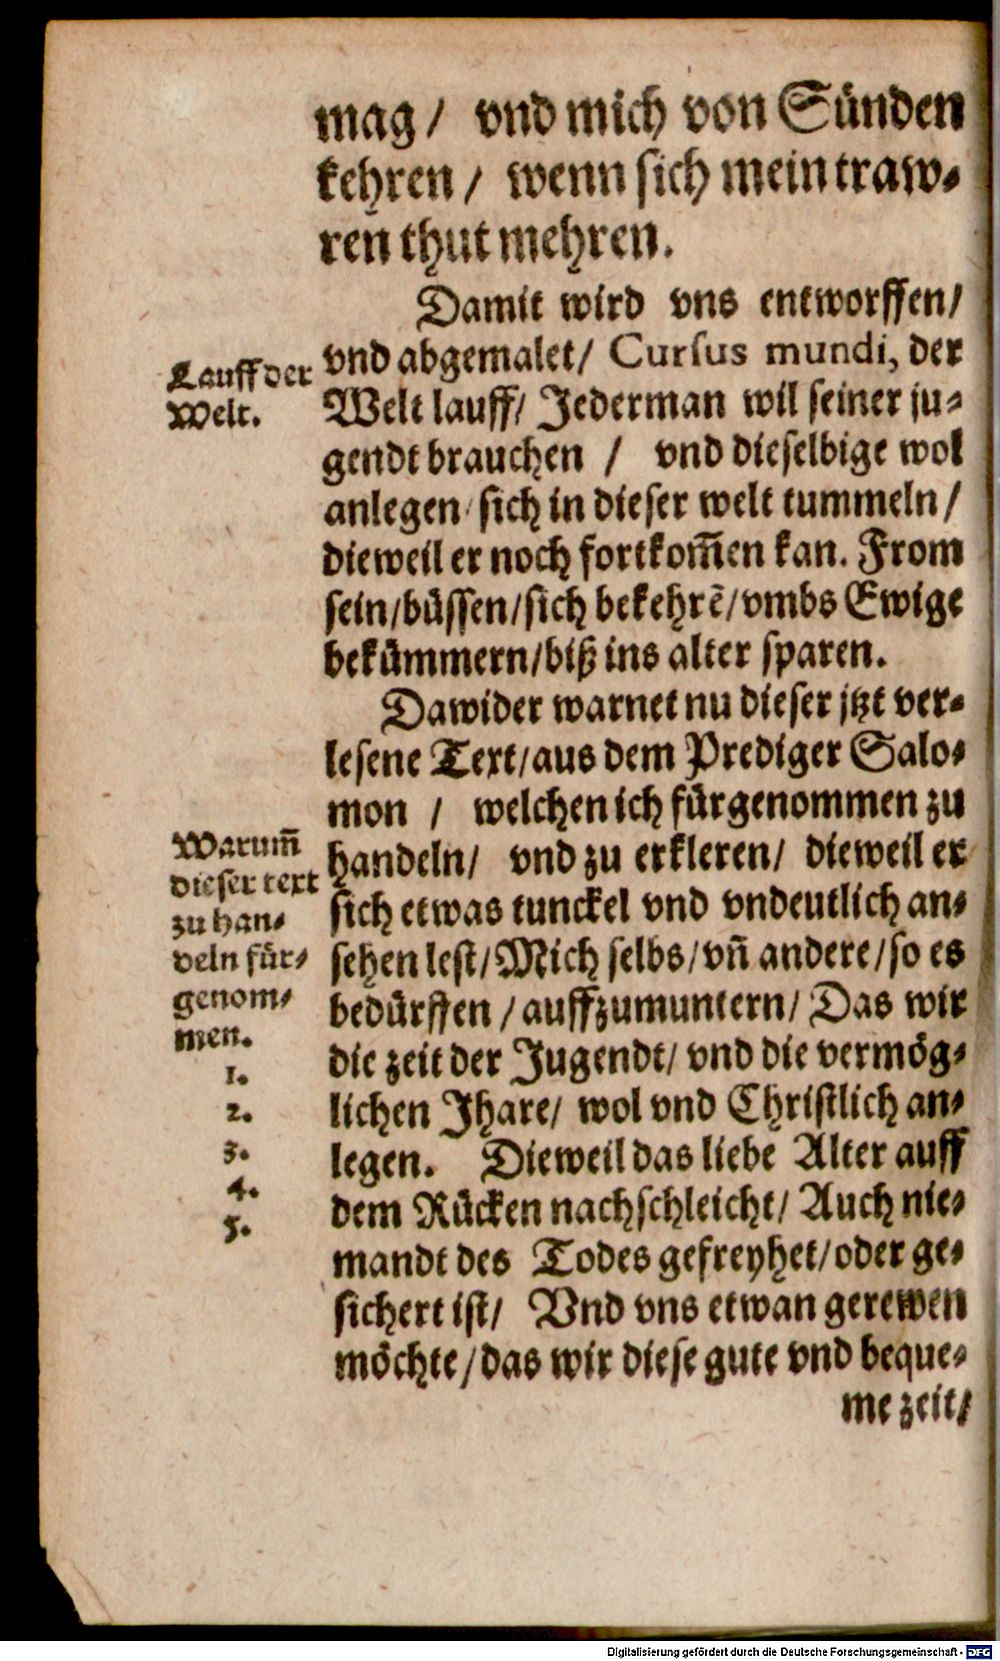 mag/ vnd mich von Sünden
kehren/ wenn sich mein traw⸗
ren thut mehren.
Damit wird vns entworffen/
vnd abgemalet/ Cursus mundi, der
Welt lauff/ Jederman wil seiner ju⸗
gendt brauchen / vnd dieselbige wol
anlegen/ sich in dieser welt tummeln/
dieweil er noch fortkom̃en kan. From
sein/büssen/sich bekehrē/vmbs Ewige
bekümmern/biß ins alter sparen.
Lauff der
Welt.
Dawider warnet nu dieser jtzt ver⸗
lesene Text/aus dem Prediger Salo⸗
mon / welchen ich fürgenommen zu
handeln/ vnd zu erkleren/ dieweil er
sich etwas tunckel vnd vndeutlich an⸗
sehen lest/Mich selbs/vñ andere/so es
bedürffen/auffzumuntern/Das wir
die zeit der Jugendt/ vnd die vermög⸗
lichen Jhare/ wol vnd Christlich an⸗
legen. Dieweil das liebe Alter auff
dem Rücken nachschleicht/ Auch nie⸗
mandt des Todes gefreyhet/oder ge⸗
sichert ist/ Vnd vns etwan gerewen
möchte/das wir diese gute vnd beque⸗
me zeit/
Warum̃
dieser text
zu han⸗
deln für⸗
genom⸗
men.
1.
2.
3.
4.
5.
Digitalisierung gefördert durch die Deutsche Forschungsgemeinschaft - DFG